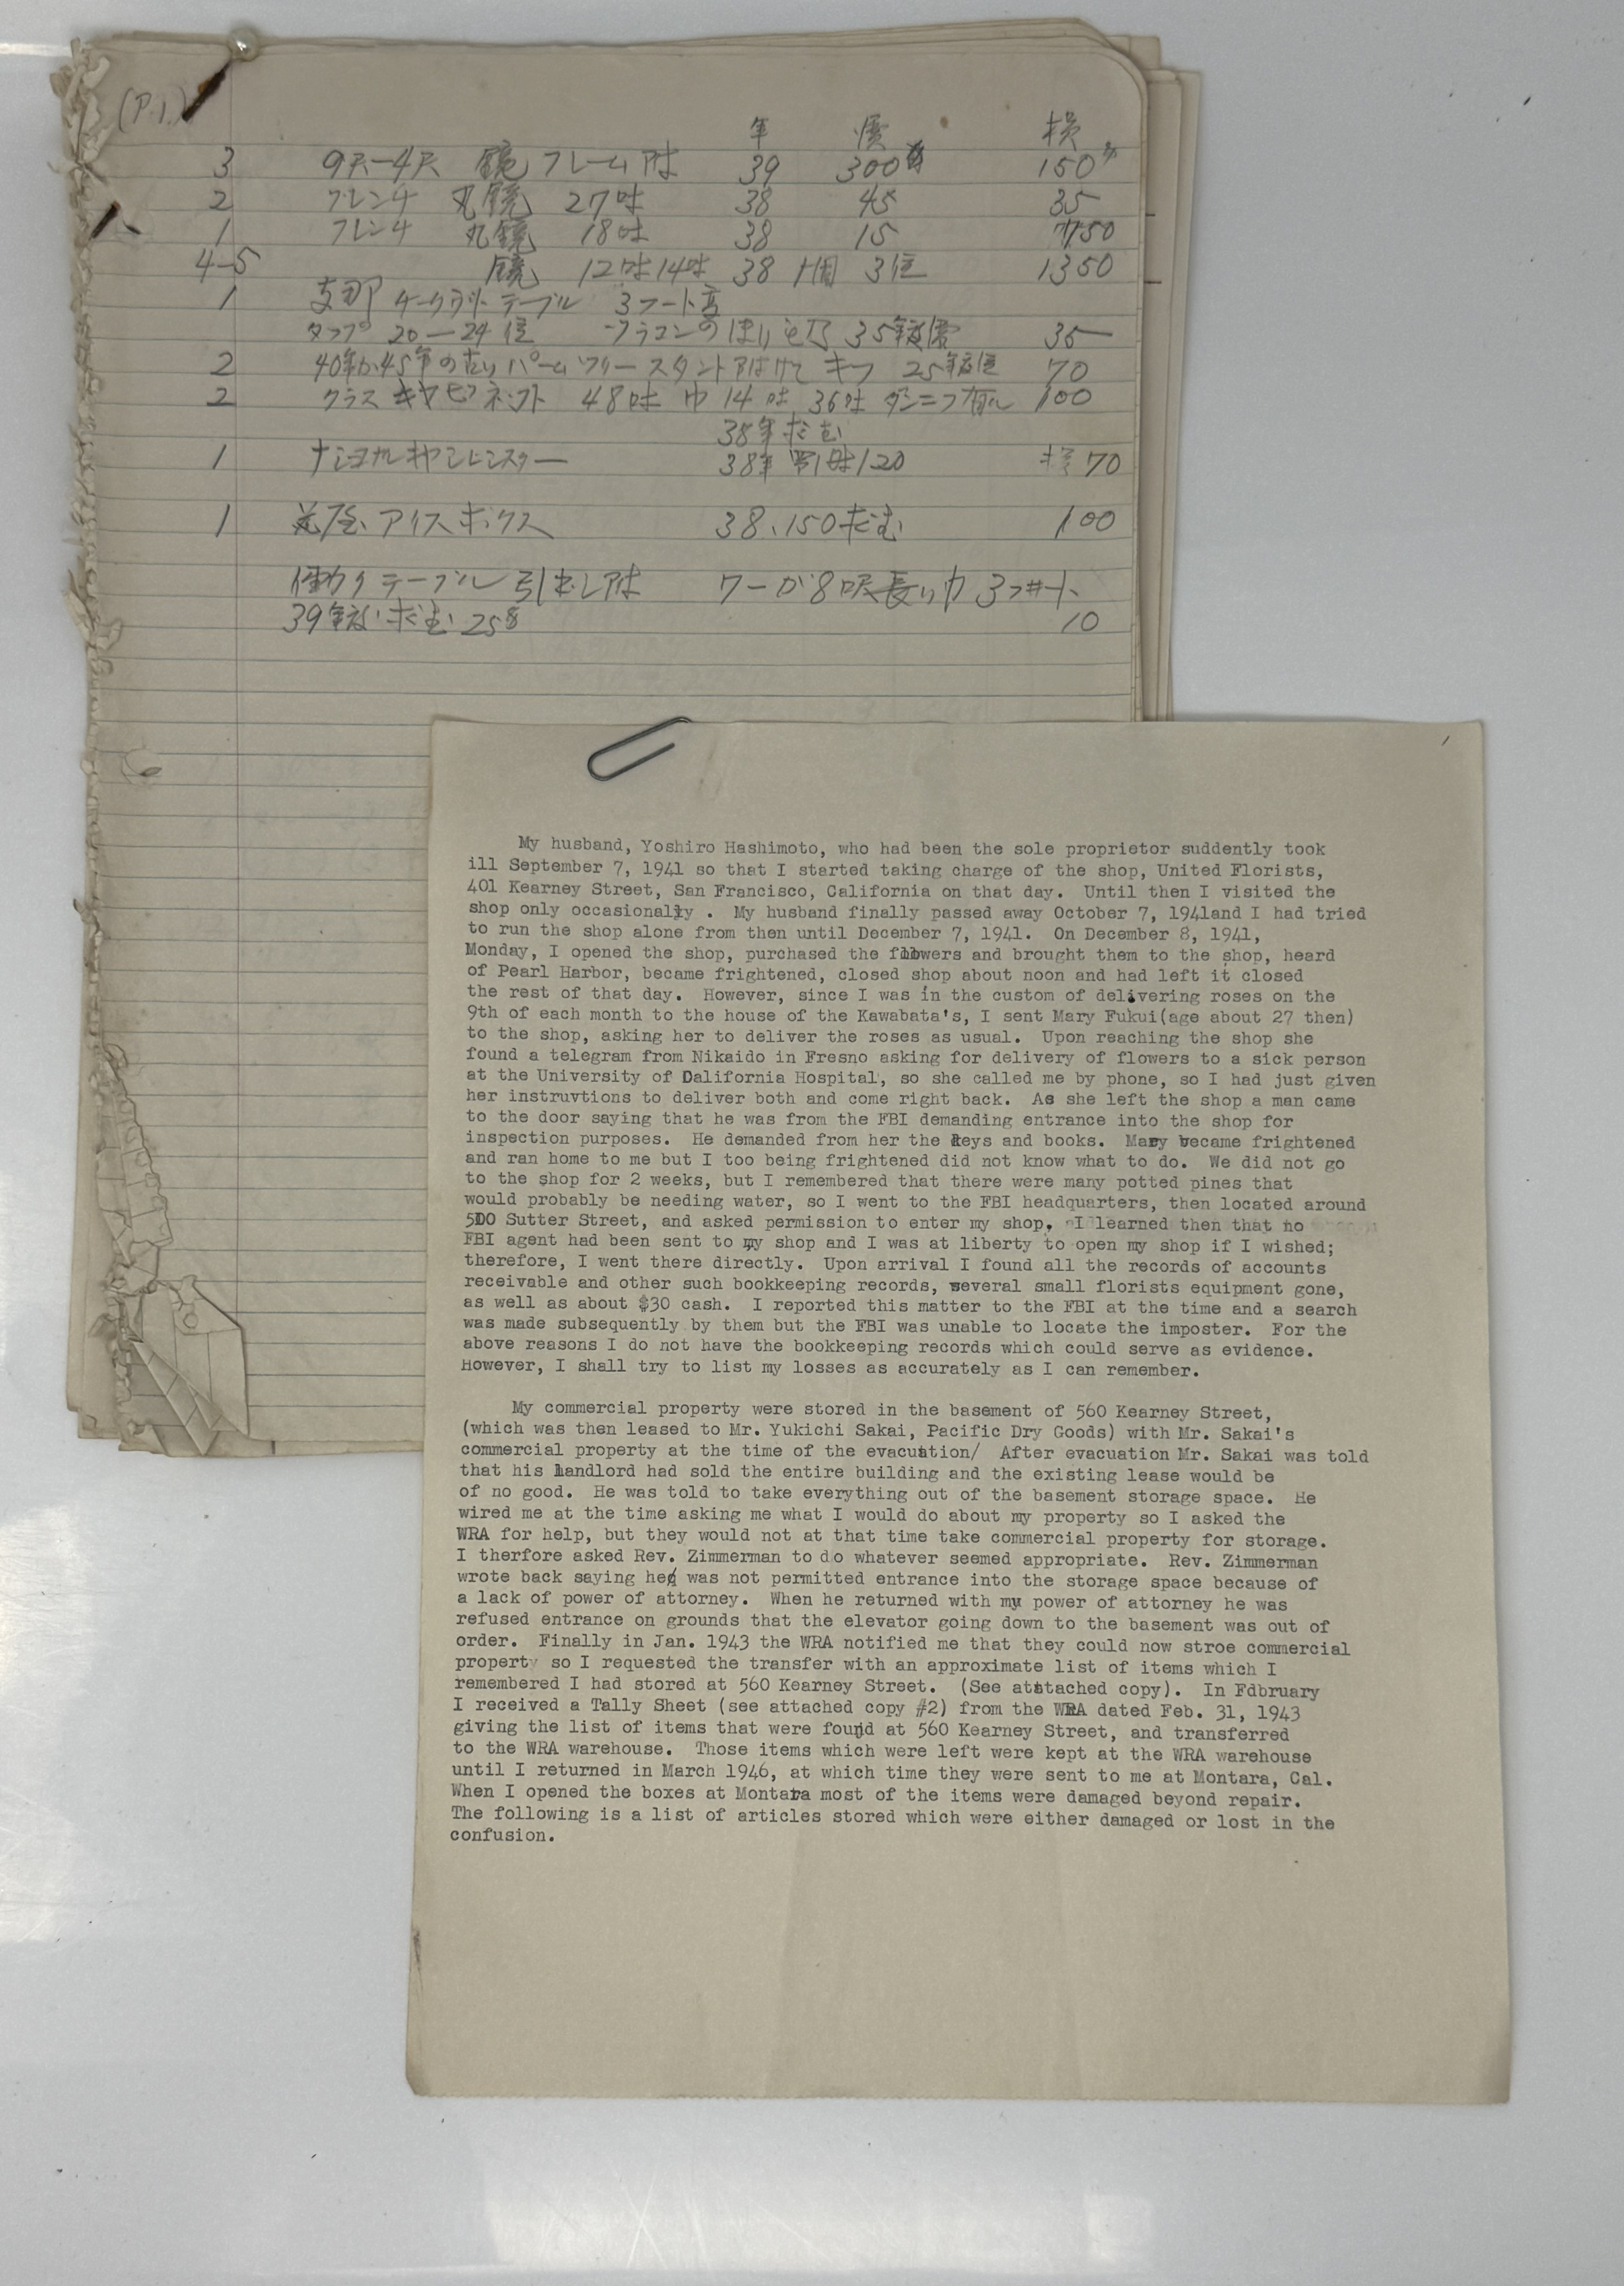 (P.1.)
年 價 損
3 9尺-4尺 鏡 フレーム附 39 300 150
2 フレンチ 丸鏡 27吋 38 45 35
1 フレンチ 丸鏡 18吋 38 15 750
4-5 鏡 12吋14吋 38 1個 3位 1350
1 支那 テーブル 3フート高
タップ 20-24位 フラコンのほり 35年 35-
2 40年か45年の古い パームツリー スタンド 25年 70
2 グラス キャビネット 48吋 巾 14吋 36吋 100
38年求む
1 ナショナル 38年 120 損 70
1 花屋 アイスボックス 38、150求む 100
働ク テーブル 引出し附 8呎長い巾
39年 求む 25$ 10
1
My husband, Yoshiro Hashimoto, who had been the sole proprietor suddently took
ill September 7, 1941 so that I started taking charge of the shop, United Florists,
401 Kearney Street, San Francisco, California on that day. Until then I visited the
shop only occasionally . My husband finally passed away October 7, 1941and I had tried
to run the shop alone from then until December 7, 1941. On December 8, 1941,
Monday, I opened the shop, purchased the flowers and brought them to the shop, heard
of Pearl Harbor, became frightened, closed shop about noon and had left it closed
the rest of that day. However, since I was in the custom of delivering roses on the
9th of each month to the house of the Kawabata's, I sent Mary Fukui(age about 27 then)
to the shop, asking her to deliver the roses as usual. Upon reaching the shop she
found a telegram from Nikaido in Fresno asking for delivery of flowers to a sick person
at the University of Dalifornia Hospital, so she called me by phone, so I had just given
her instruvtions to deliver both and come right back. As she left the shop a man came
to the door saying that he was from the FBI demanding entrance into the shop for
inspection purposes. He demanded from her the keys and books. Mary became frightened
and ran home to me but I too being frightened did not know what to do. We did not go
to the shop for 2 weeks, but I remembered that there were many potted pines that
would probably be needing water, so I went to the FBI headquarters, then located around
500 Sutter Street, and asked permission to enter my shop. I learned then that no
FBI agent had been sent to my shop and I was at liberty to open my shop if I wished;
therefore, I went there directly. Upon arrival I found all the records of accounts
receivable and other such bookkeeping records, several small florists equipment gone,
as well as about $30 cash. I reported this matter to the FBI at the time and a search
was made subsequently by them but the FBI was unable to locate the imposter. For the
above reasons I do not have the bookkeeping records which could serve as evidence.
However, I shall try to list my losses as accurately as I can remember.
My commercial property were stored in the basement of 560 Kearney Street,
(which was then leased to Mr. Yukichi Sakai, Pacific Dry Goods) with Mr. Sakai's
commercial property at the time of the evacuation/ After evacuation Mr. Sakai was told
that his landlord had sold the entire building and the existing lease would be
of no good. He was told to take everything out of the basement storage space. He
wired me at the time asking me what I would do about my property so I asked the
WRA for help, but they would not at that time take commercial property for storage.
I therfore asked Rev. Zimmerman to do whatever seemed appropriate. Rev. Zimmerman
wrote back saying he was not permitted entrance into the storage space because of
a lack of power of attorney. When he returned with my power of attorney he was
refused entrance on grounds that the elevator going down to the basement was out of
order. Finally in Jan. 1943 the WRA notified me that they could now stroe commercial
property so I requested the transfer with an approximate list of items which I
remembered I had stored at 560 Kearney Street. (See atttached copy). In Fdbruary
I received a Tally Sheet (see attached copy #2) from the WRA dated Feb. 31, 1943
giving the list of items that were found at 560 Kearney Street, and transferred
to the WRA warehouse. Those items which were left were kept at the WRA warehouse
until I returned in March 1946, at which time they were sent to me at Montara, Cal.
When I opened the boxes at Montara most of the items were damaged beyond repair.
The following is a list of articles stored which were either damaged or lost in the
confusion.